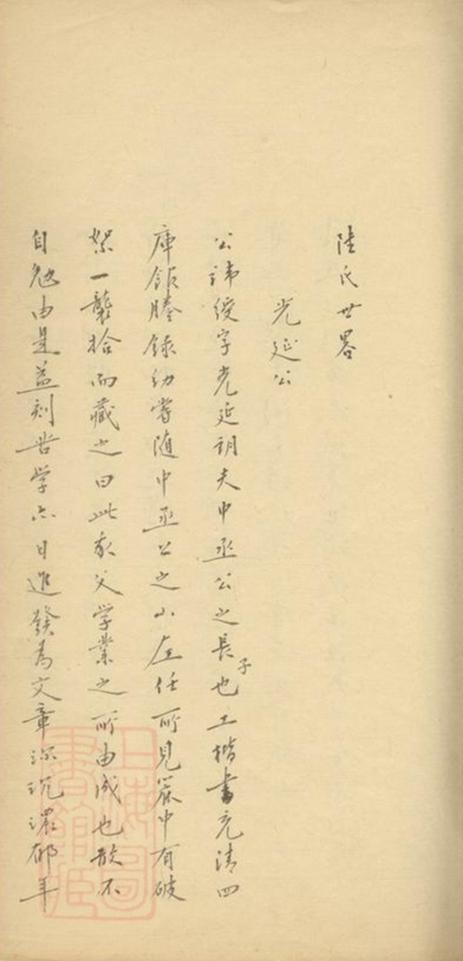 陸氏世畧
光延公
公諱綬字光延朗夫中丞公之長子也工楷書充清四
庫館謄錄幼嘗隨中丞公之山左任所見中有破
絮一襲拾而藏之曰此我父学業之所由成也敢不
自勉由是益刻苦学亦日進發為文章深沉濃郁年
上海圖書館藏